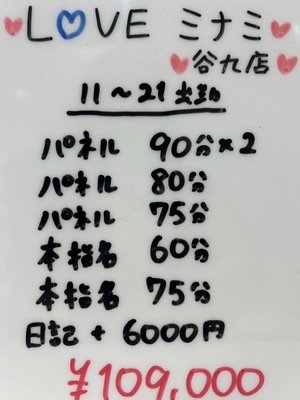 ♥LOVE ミナミ♥
♥谷九店♥
11～21出勤
パネル 90分×2
パネル 80分
パネル 75分
本指名 60分
本指名 75分
日記 + 6000円
¥109,000